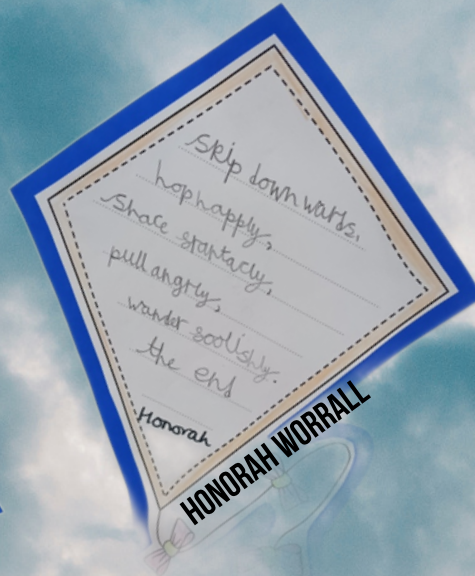 Skip downwards,
hop happly,
Shace spantacly,
pull angrly,
wander soolishly.
the end
Honorah
HONORAH WORRALL